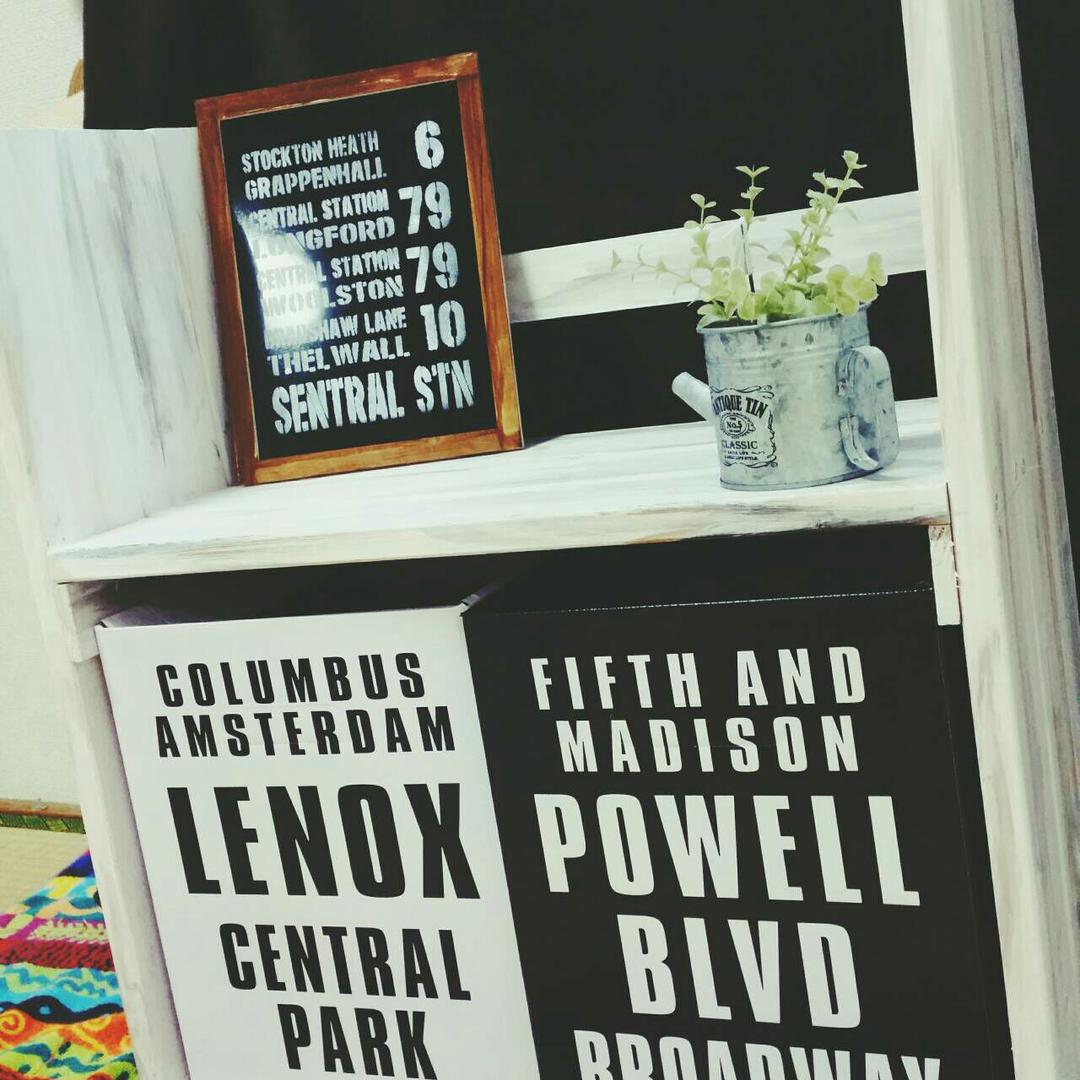 STOCKTON HEATH 6
GRAPPENHALL
CENTRAL STATION 79
LONGFORD
CENTRAL STATION 79
WOOLSTON
BRADSHAW LANE 10
THELWALL
SENTRAL STN
ANTIQUE TIN
No.5
CLASSIC
COLUMBUS
AMSTERDAM
LENOX
CENTRAL
PARK
FIFTH AND
MADISON
POWELL
BLVD
BROADWAY